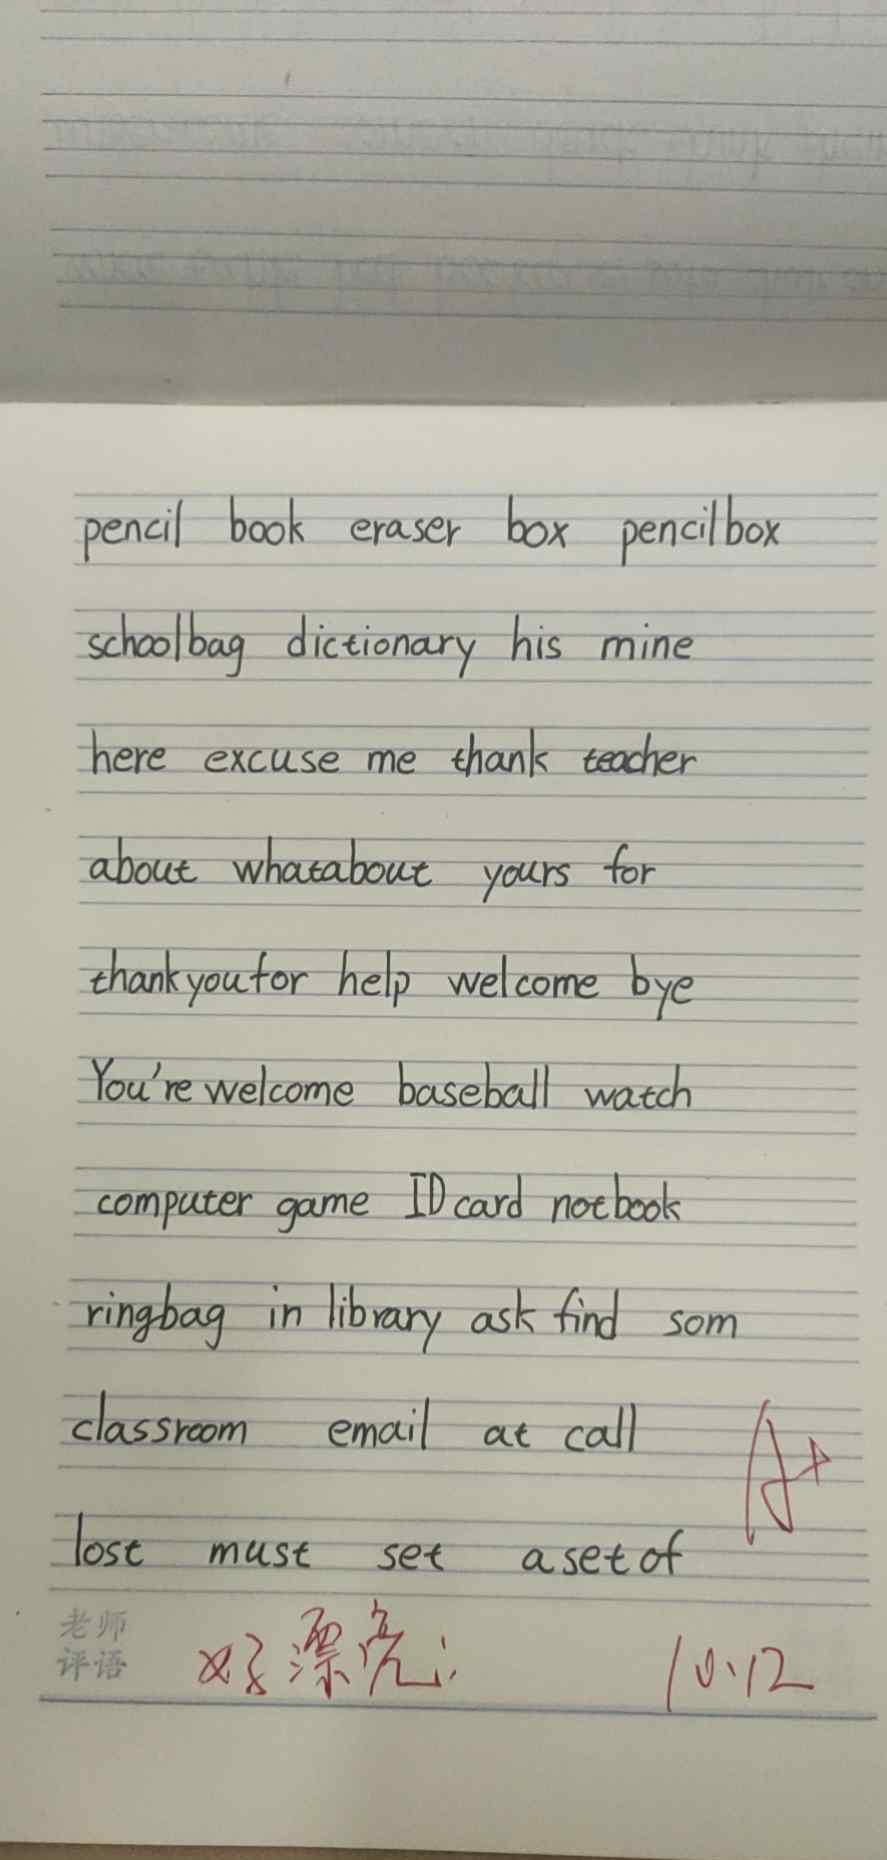 pencil book eraser box pencilbox
schoolbag dictionary his mine
here excuse me thank teacher
about whatabout yours for
thankyoufor help welcome bye
You're welcome baseball watch
computer game ID card notebook
ringbag in library ask find som
classroom email at call
A+
lost must set a set of
老师
评语
好漂亮
10.12